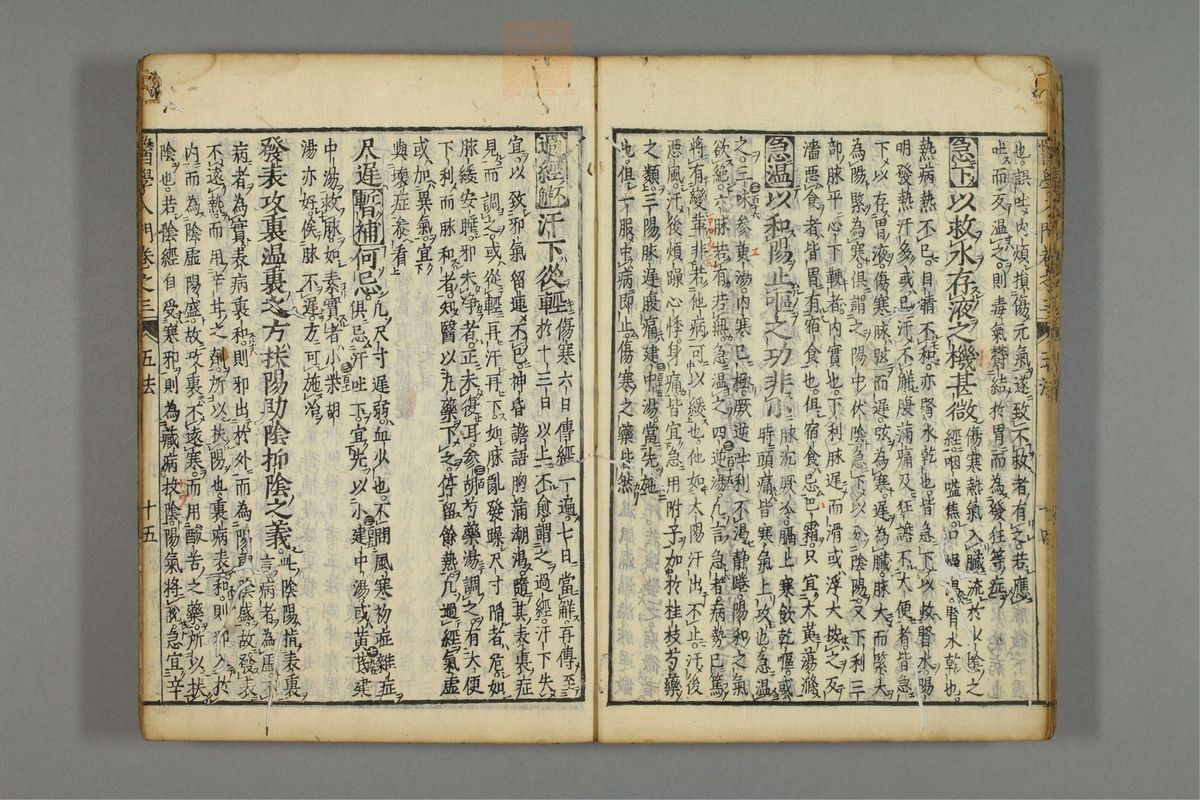 也語吐內煩損傷元氣遂致不救者有之若應
吐而反溫之則毒氣鬱結於胃而為發狂等症
急下以救水存液之機甚微傷寒熱氣入臟流於少陰之
經咽嗌焦口渴腎水乾也
熱病熱不已目睛不和亦腎水乾也皆急下以救腎水陽
明發熱汗多或已汗不解腹滿痛及狂譫不大便者皆急
下以存胃液傷寒脉弦而遲弦為寒遲為臟脉大而緊大
為陽緊為寒俱謂之陽中伏陰急下以分陰陽又下利三
部脉平心下鞕者內實也下利脉遲而滑或浮大按之反
濇惡食者皆胃有宿食也俱宿食忌巴霜只宜大黃蕩滌
急溫以和陽止嘔之功非小時頭痛皆寒氣上攻也急溫
脉沉厥冷膈上寒飲乾嘔或
之三味參萸湯內寒已極厥逆吐利不渴靜踡陽和之氣
欲絕六脉若有若無急溫之四逆湯凡言急者病勢已篤
將有變革非若他病可以緩也他如太陽汗出不止汗後
惡風汗後煩躁心悸身痛皆宜急用附子加於桂枝芍藥
之類三陽脉遲腹痛建中湯當先施
也但一服中病即止傷寒之藥皆然
過經解汗下從輕傷寒六日傳經一過七日當解再傳至
於十三日以上不愈謂之過經汗下失
宜以致邪氣留連不已神昏譫語胸滿潮濕隨其表裏症
見而調之或從輕再汗再下如脉亂發躁尺寸陷者危如
脉緩安睡邪未淨者正未復耳參胡芍藥湯調之有大便
下利而脉和者知醫以丸藥下之停留餘熱凡過經氣虛
或加異氣宜
與壞症參看
尺遲暫補何忌凡尺寸遲弱血少也不問風寒初症雜症
俱忌汗吐下宜先以小建中湯或黃芪建
中湯救脉如素實者小柴胡
湯亦好俟脉不遲方可施治
發表攻裏溫裏之方扶陽助陰抑陰之義此陰陽指表裏
言病者為虛不
病者為實表病裏和則邪出於外而為陽虛陰盛故發表
不遠熱而用辛甘之劑所以扶陽也裏病表和則邪入於
內而為陰虛陽盛故攻裏不遠寒而用酸苦之藥所以扶
陰也若陰經自受寒邪則為臟病扶陰陽氣將脫急宜辛
醫學入門卷之三 五法 十五